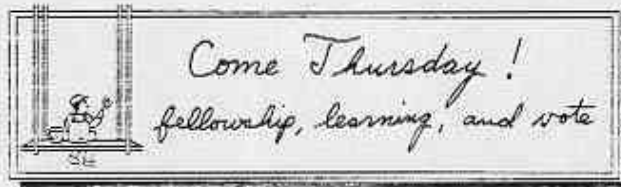 Come Thursday !
fellowship, learning, and vote